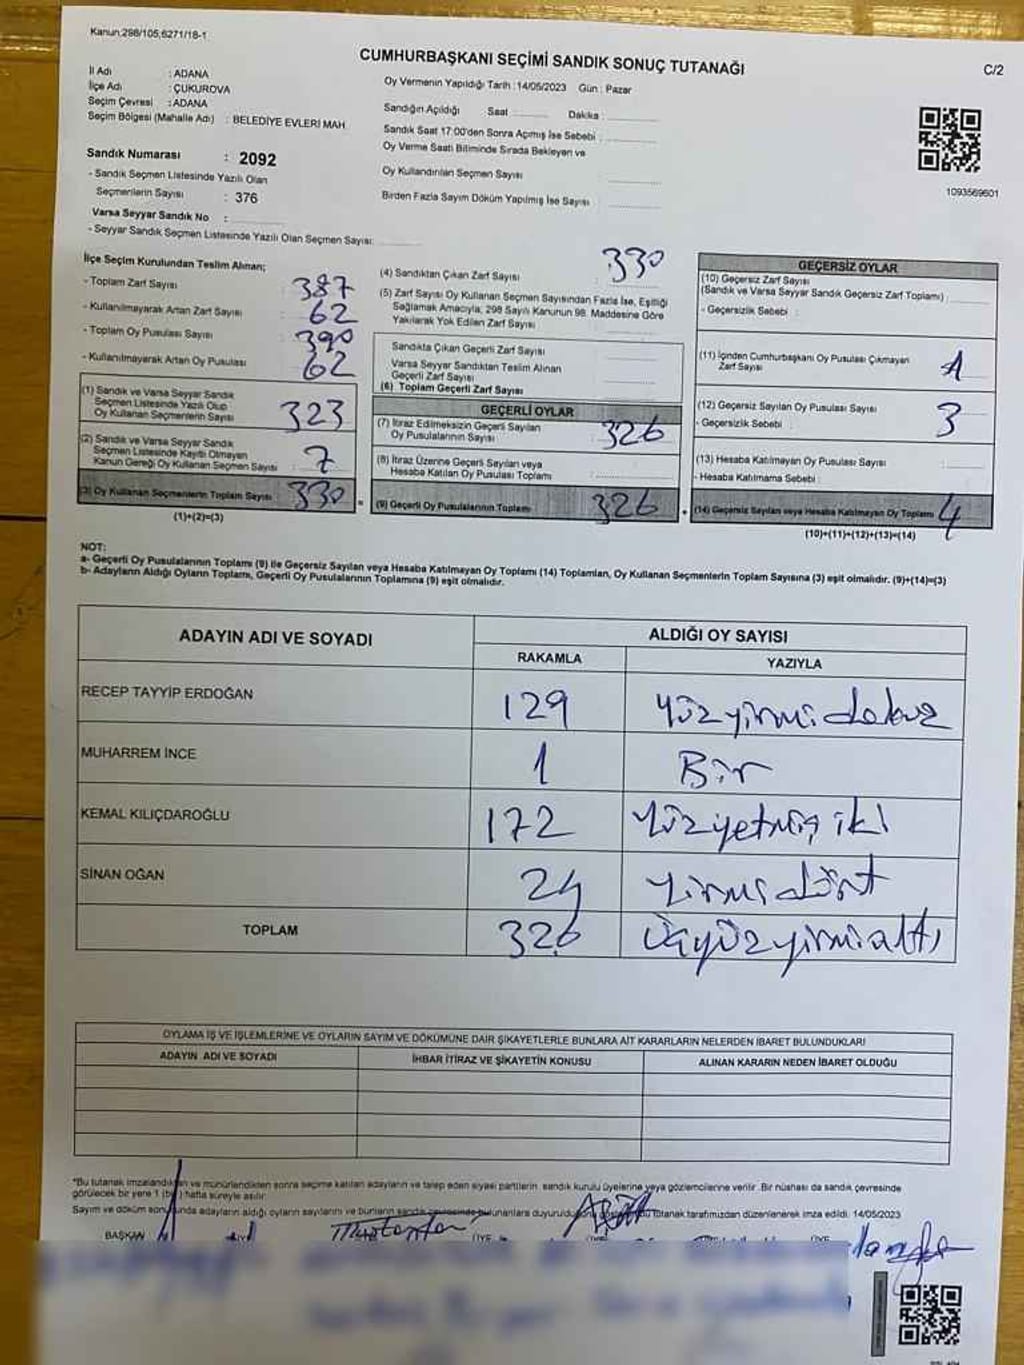 Kanun;298/105,6271/18-1
CUMHURBAŞKANI SEÇİMİ SANDIK SONUÇ TUTANAĞI
C/2
İl Adı : ADANA
İlçe Adı : ÇUKUROVA
Seçim Çevresi : ADANA
Seçim Bölgesi (Mahalle Adı) : BELEDİYE EVLERİ MAH
Sandık Numarası : 2092
- Sandık Seçmen Listesinde Yazılı Olan
Seçmenlerin Sayısı : 376
Varsa Seyyar Sandık No :
- Seyyar Sandık Seçmen Listesinde Yazılı Olan Seçmen Sayısı:
Oy Vermenin Yapıldığı Tarih : 14/05/2023 Gün : Pazar
Sandığın Açıldığı Saat Dakika :
Sandık Saat 17:00'den Sonra Açılmış İse Sebebi :
Oy Verme Saati Bitiminde Sırada Bekleyen ve
Oy Kullandırılan Seçmen Sayısı
Birden Fazla Sayım Döküm Yapılmış İse Sayısı :
1093569601
İlçe Seçim Kurulundan Teslim Alınan;
- Toplam Zarf Sayısı : 387
- Kullanılmayarak Artan Zarf Sayısı : 62
- Toplam Oy Pusulası Sayısı : 390
- Kullanılmayarak Artan Oy Pusulası : 62
(1) Sandık ve Varsa Seyyar Sandık
Seçmen Listesinde Yazılı Olup
Oy Kullanan Seçmenlerin Sayısı : 323
(2) Sandık ve Varsa Seyyar Sandık
Seçmen Listesinde Kayıtlı Olmayan
Kanun Gereği Oy Kullanan Seçmen Sayısı : 7
(3) Oy Kullanan Seçmenlerin Toplam Sayısı : 330 =
(1)+(2)=(3)
(4) Sandıktan Çıkan Zarf Sayısı : 330
(5) Zarf Sayısı Oy Kullanan Seçmen Sayısından Fazla İse, Eşitliği
Sağlamak Amacıyla, 298 Sayılı Kanunun 98. Maddesine Göre
Yakılarak Yok Edilen Zarf Sayısı
Sandıkta Çıkan Geçerli Zarf Sayısı
Varsa Seyyar Sandıktan Teslim Alınan
Geçerli Zarf Sayısı
(6) Toplam Geçerli Zarf Sayısı
GEÇERLİ OYLAR
(7) İtiraz Edilmeksizin Geçerli Sayılan
Oy Pusulalarının Sayısı : 326
(8) İtiraz Üzerine Geçerli Sayılan veya
Hesaba Katılan Oy Pusulası Toplamı
(9) Geçerli Oy Pusulalarının Toplamı : 326 +
GEÇERSİZ OYLAR
(10) Geçersiz Zarf Sayısı
(Sandık ve Varsa Seyyar Sandık Geçersiz Zarf Toplamı) :
- Geçersizlik Sebebi :
(11) İçinden Cumhurbaşkanı Oy Pusulası Çıkmayan
Zarf Sayısı : 1
(12) Geçersiz Sayılan Oy Pusulası Sayısı : 3
- Geçersizlik Sebebi :
(13) Hesaba Katılmayan Oy Pusulası Sayısı :
- Hesaba Katılmama Sebebi :
(14) Geçersiz Sayılan veya Hesaba Katılmayan Oy Toplamı 4
(10)+(11)+(12)+(13)=(14)
NOT:
a- Geçerli Oy Pusulalarının Toplamı (9) ile Geçersiz Sayılan veya Hesaba Katılmayan Oy Toplamı (14) Toplamları, Oy Kullanan Seçmenlerin Toplam Sayısına (3) eşit olmalıdır. (9)+(14)=(3)
b- Adayların Aldığı Oyların Toplamı, Geçerli Oy Pusulalarının Toplamına (9) eşit olmalıdır.
ADAYIN ADI VE SOYADI
ALDIĞI OY SAYISI
RAKAMLA YAZIYLA
RECEP TAYYİP ERDOĞAN 129 Yüzyirmidokuz
MUHARREM İNCE 1 Bir
KEMAL KILIÇDAROĞLU 172 Yüzyetmiş iki
SİNAN OĞAN 24 Yirmidört
TOPLAM 326 Üçyüzyirmialtı
OYLAMA İŞ VE İŞLEMLERİNE VE OYLARIN SAYIM VE DÖKÜMÜNE DAİR ŞİKAYETLERLE BUNLARA AİT KARARLARIN NELERDEN İBARET BULUNDUKLARI
ADAYIN ADI VE SOYADI İHBAR İTİRAZ VE ŞİKAYETİN KONUSU ALINAN KARARIN NEDEN İBARET OLDUĞU
*Bu tutanak imzalandıktan ve mühürlendikten sonra seçime katılan adayların ve talep eden siyasi partilerin sandık kurulu üyelerine veya gözlemcilerine verilir. Bir nüshası da sandık çevresinde
görülecek bir yere 1 (bir) hafta süreyle asılır.
Sayım ve döküm adayların aldığı oyların sayılarını ve bunların duyuruldu tutanak tarafımızdan düzenlenerek imza edildi. 14/05/2023
BAŞKAN